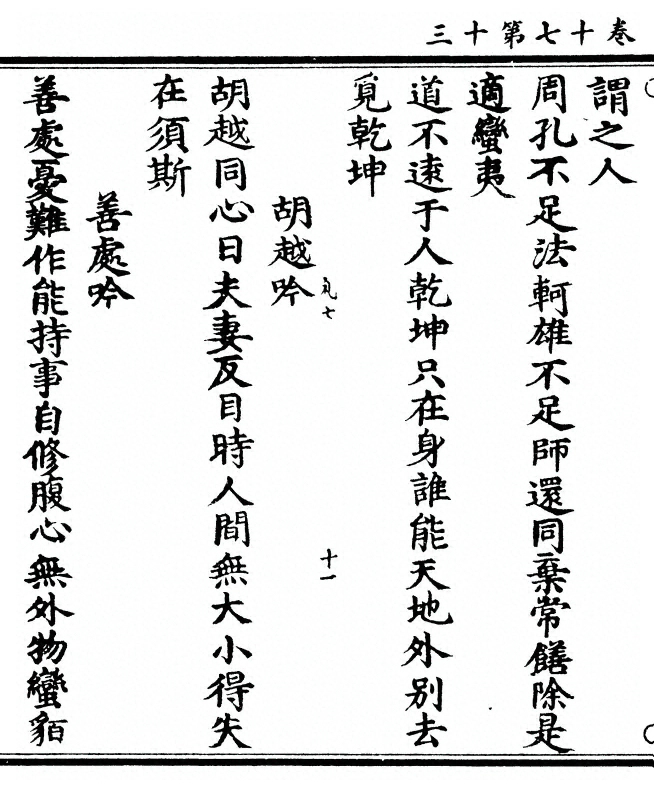 卷十七第十三
謂之人
周孔不足法軻雄不足師還同棄常饍除是
適蠻夷
道不遠于人乾坤只在身誰能天地外別去
覓乾坤
丸七
十一
胡越吟
胡越同心日夫妻反目時人間無大小得失
在須斯
善處吟
善處憂難作能持事自修腹心無外物蠻貊